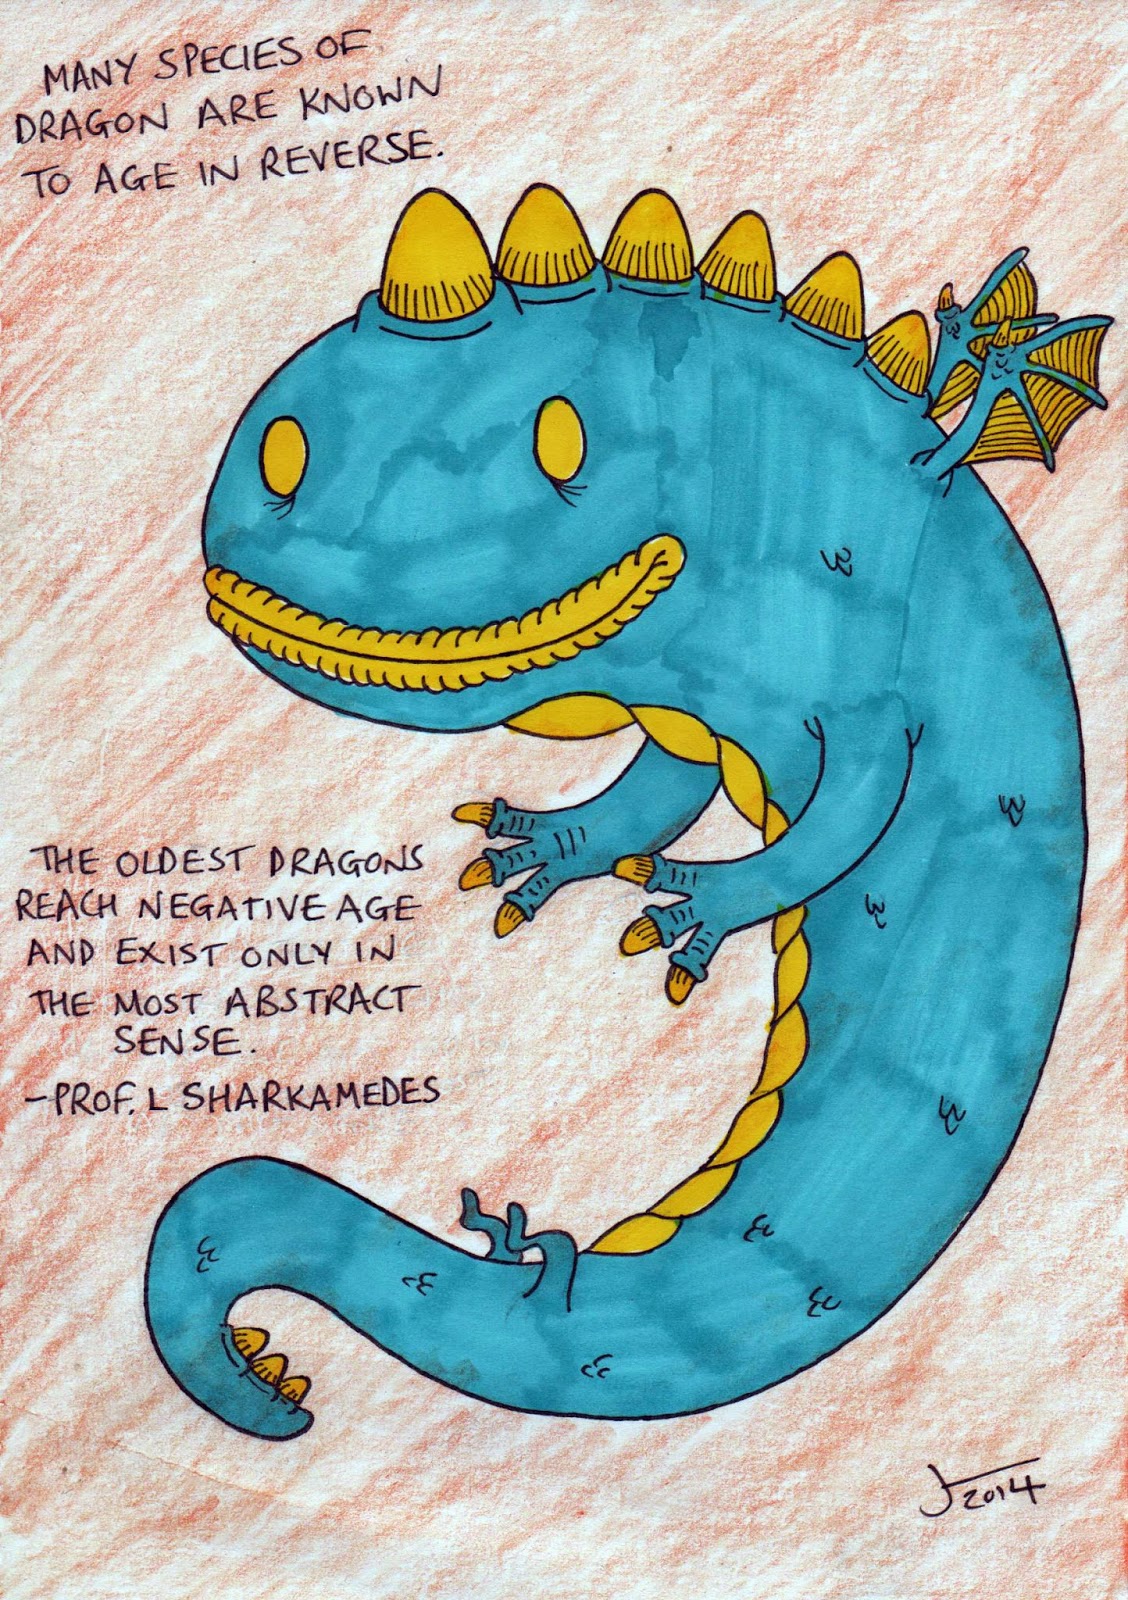 MANY SPECIES OF
DRAGON ARE KNOWN
TO AGE IN REVERSE.
THE OLDEST DRAGONS
REACH NEGATIVE AGE
AND EXIST ONLY IN
THE MOST ABSTRACT
SENSE.
–PROF. L SHARKAMEDES
2014